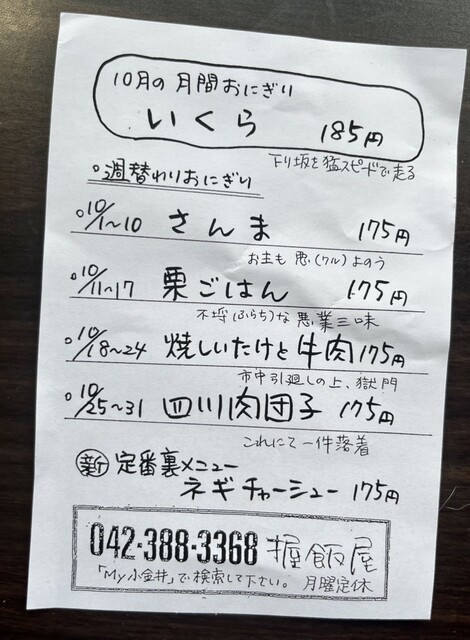 10月の月間おにぎり
いくら 185円
下り坂を猛スピードで走る
○週替わりおにぎり
○10/1〜10 さんま 175円
お主も悪(ワル)よのう
○10/11〜17 栗ごはん 175円
不埒(ふらち)な悪業三昧
○10/18〜24 焼しいたけと牛肉 175円
市中引廻しの上、獄門
○10/25〜31 四川肉団子 175円
これにて一件落着
新 定番裏メニュー
ネギチャーシュー 175円
042-388-3368 握飯屋
「My小金井」で検索して下さい。 月曜定休